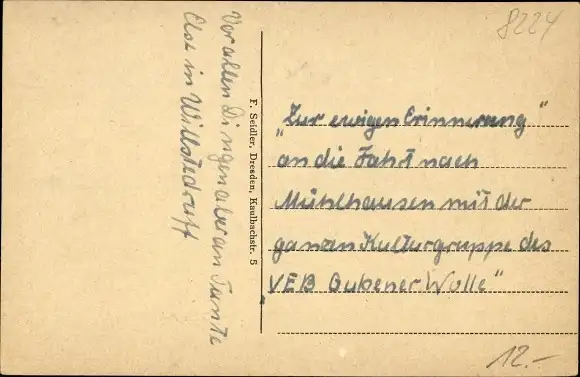 8224
Vor allen Dingen aber an Tante
Else in Willstedruff
F. Seidler, Dresden, Kaulbachstr. 5
„Zur ewigen Erinnerung"
an die Fahrt nach
Mühlhausen mit der
ganzen Kulturgruppe des
VEB Gubener Wolle"
12.-